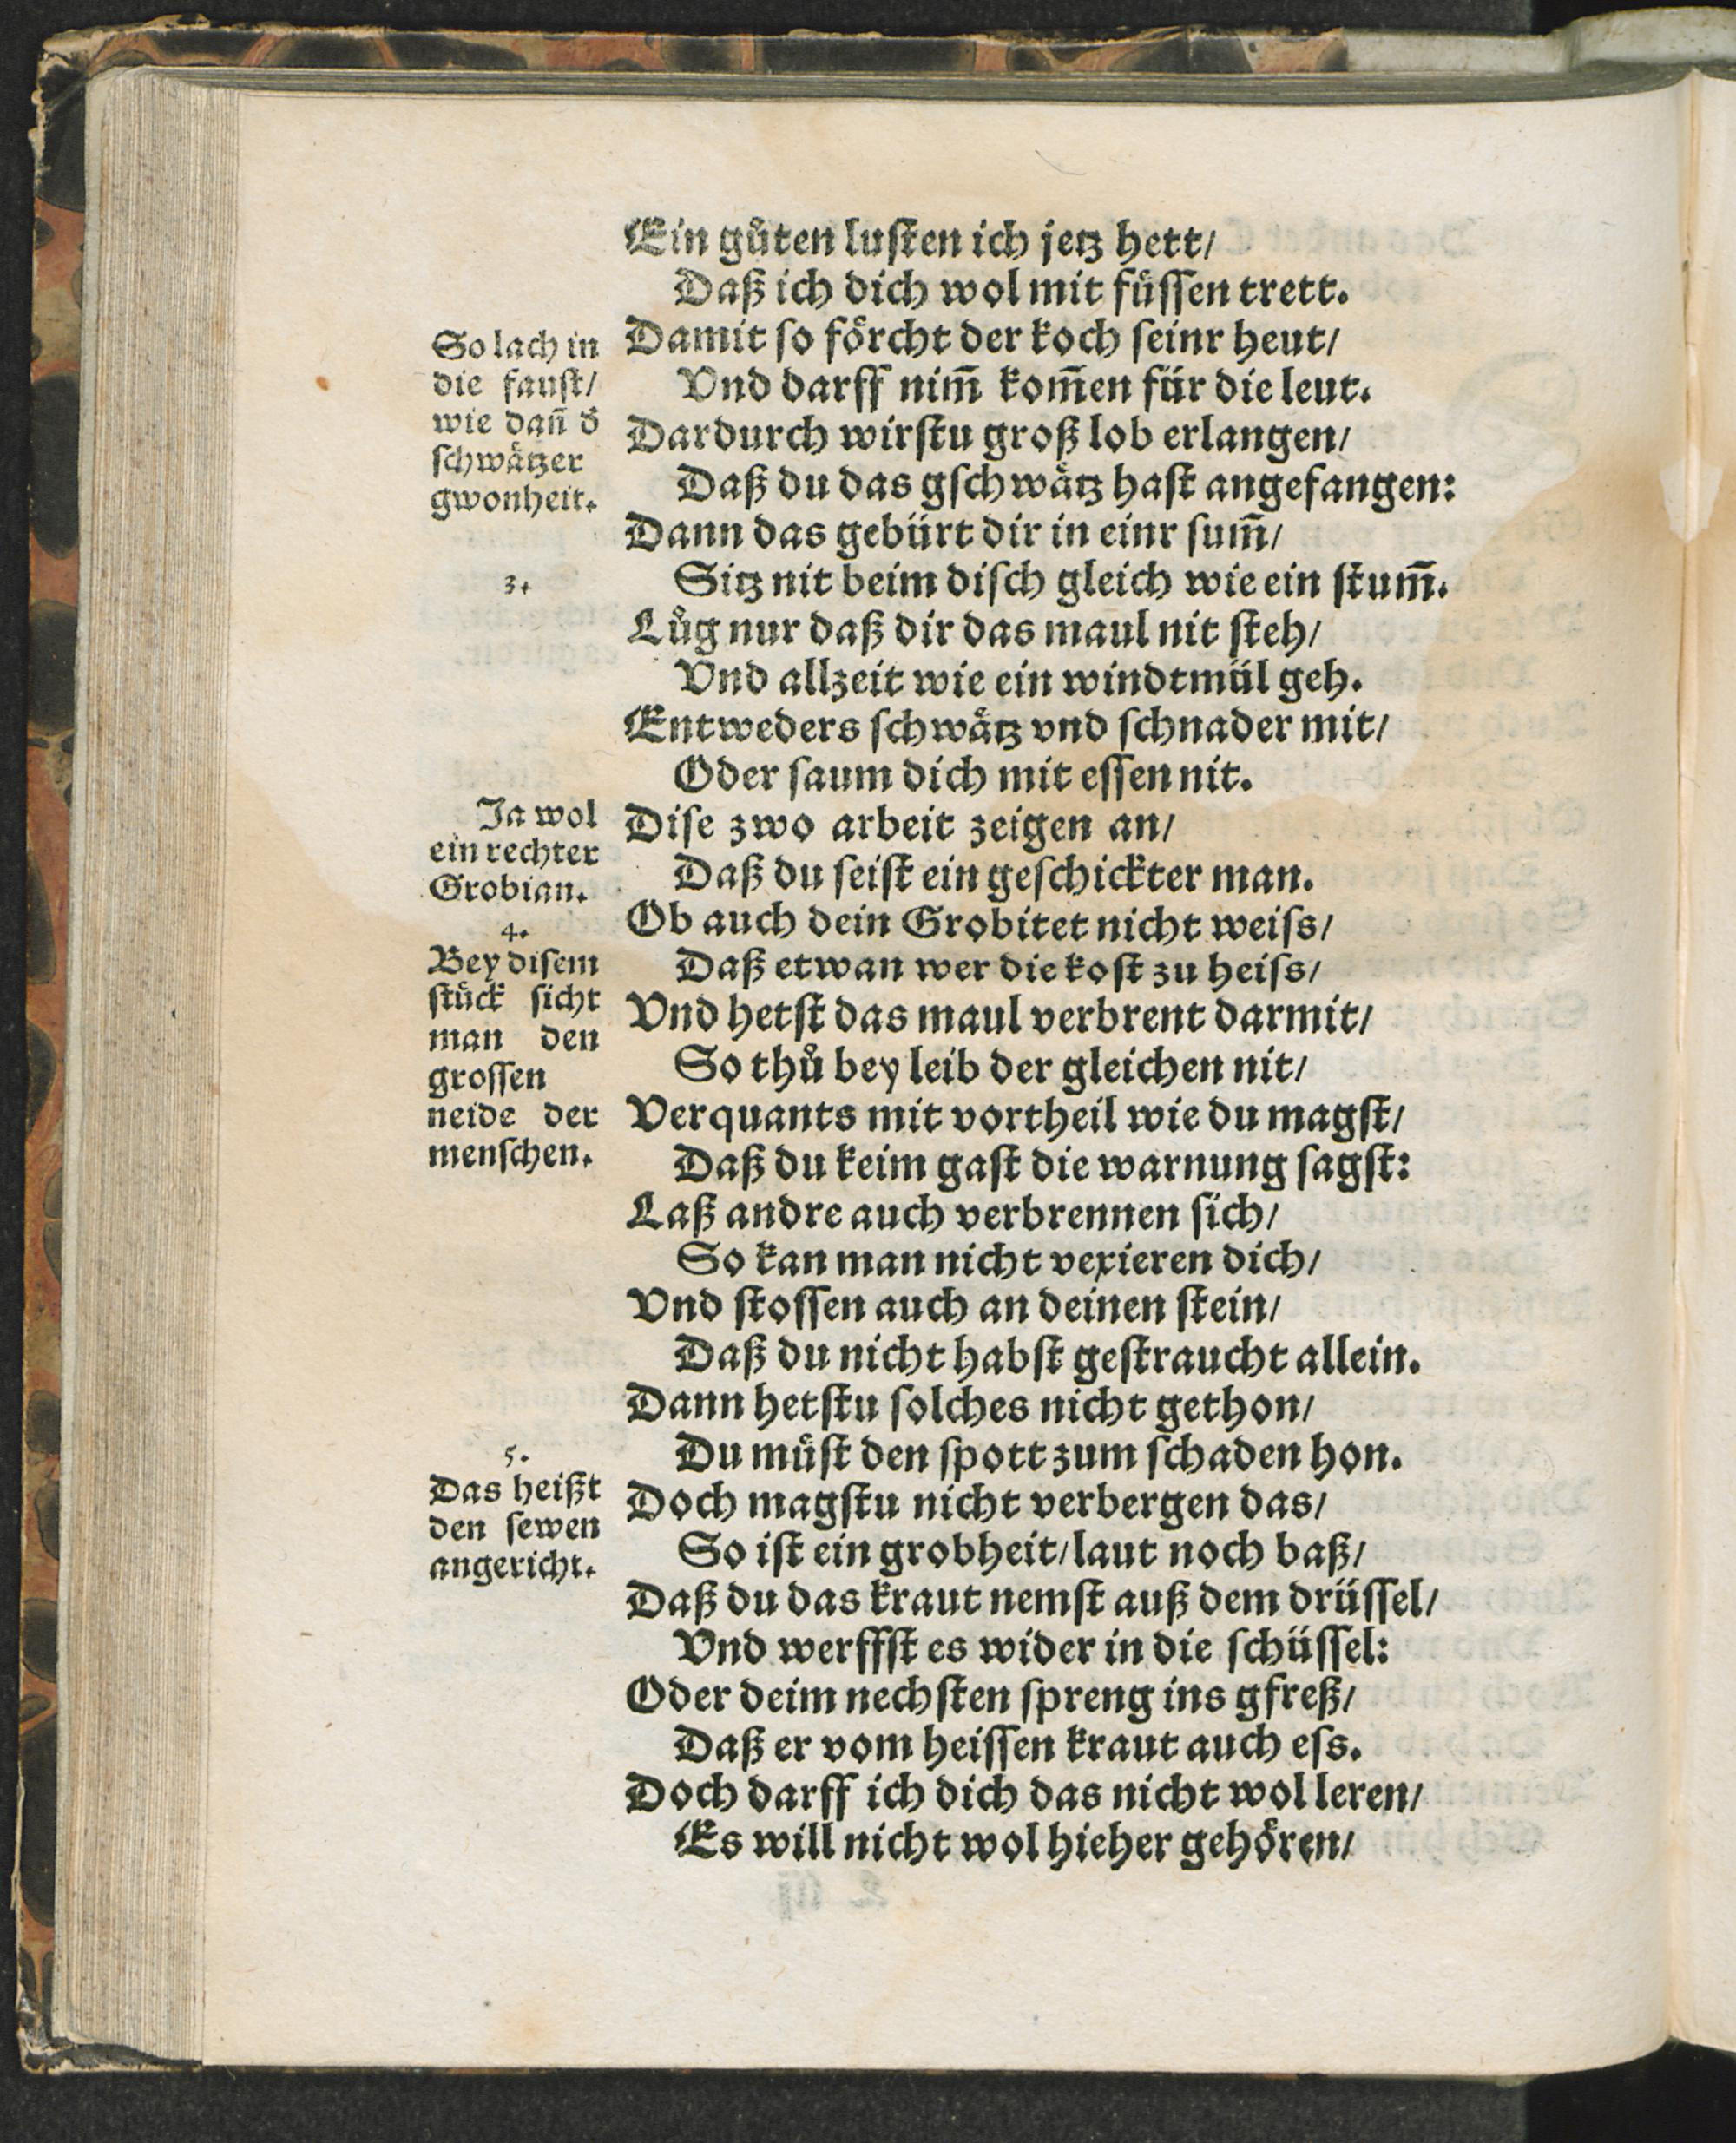 Ein gůten lusten ich jetz hett/
Daß ich dich wol mit fuͤssen trett.
Damit so foͤrcht der koch seinr heut/
Vnd darff nim̃ kom̃en für die leut.
Dardurch wirstu groß lob erlangen/
Daß du das gschwaͤtz hast angefangen:
Dann das gebürt dir in einr sum̃/
Sitz nit beim disch gleich wie ein stum̃.
Lůg nur daß dir das maul nit steh/
Vnd allzeit wie ein windtmül geh.
Entweders schwaͤtz vnd schnader mit/
Oder saum dich mit essen nit.
Dise zwo arbeit zeigen an/
Daß du seist ein geschickter man.
Ob auch dein Grobitet nicht weiss/
Daß etwan wer die kost zu heiss/
Vnd hetst das maul verbrent darmit/
So thů bey leib der gleichen nit/
Verquants mit vortheil wie du magst/
Daß du keim gast die warnung sagst:
Laß andre auch verbrennen sich/
So kan man nicht vexieren dich/
Vnd stossen auch an deinen stein/
Daß du nicht habst gestraucht allein.
Dann hetstu solches nicht gethon/
Du muͤst den spott zum schaden hon.
Doch magstu nicht verbergen das/
So ist ein grobheit/laut noch baß/
Daß du das kraut nemst auß dem drüssel/
Vnd werffst es wider in die schüssel:
Oder deim nechsten spreng ins gfreß/
Daß er vom heissen kraut auch ess.
Doch darff ich dich das nicht wol leren/
Es will nicht wol hieher gehoͤren/
So lach in
die faust/
wie dañ d̓
schwaͤtzer
gwonheit.
3.
Ja wol
ein rechter
Grobian.
4.
Bey disem
stuͤck sicht
man den
grossen
neide der
menschen.
5.
Das heißt
den sewen
angericht.